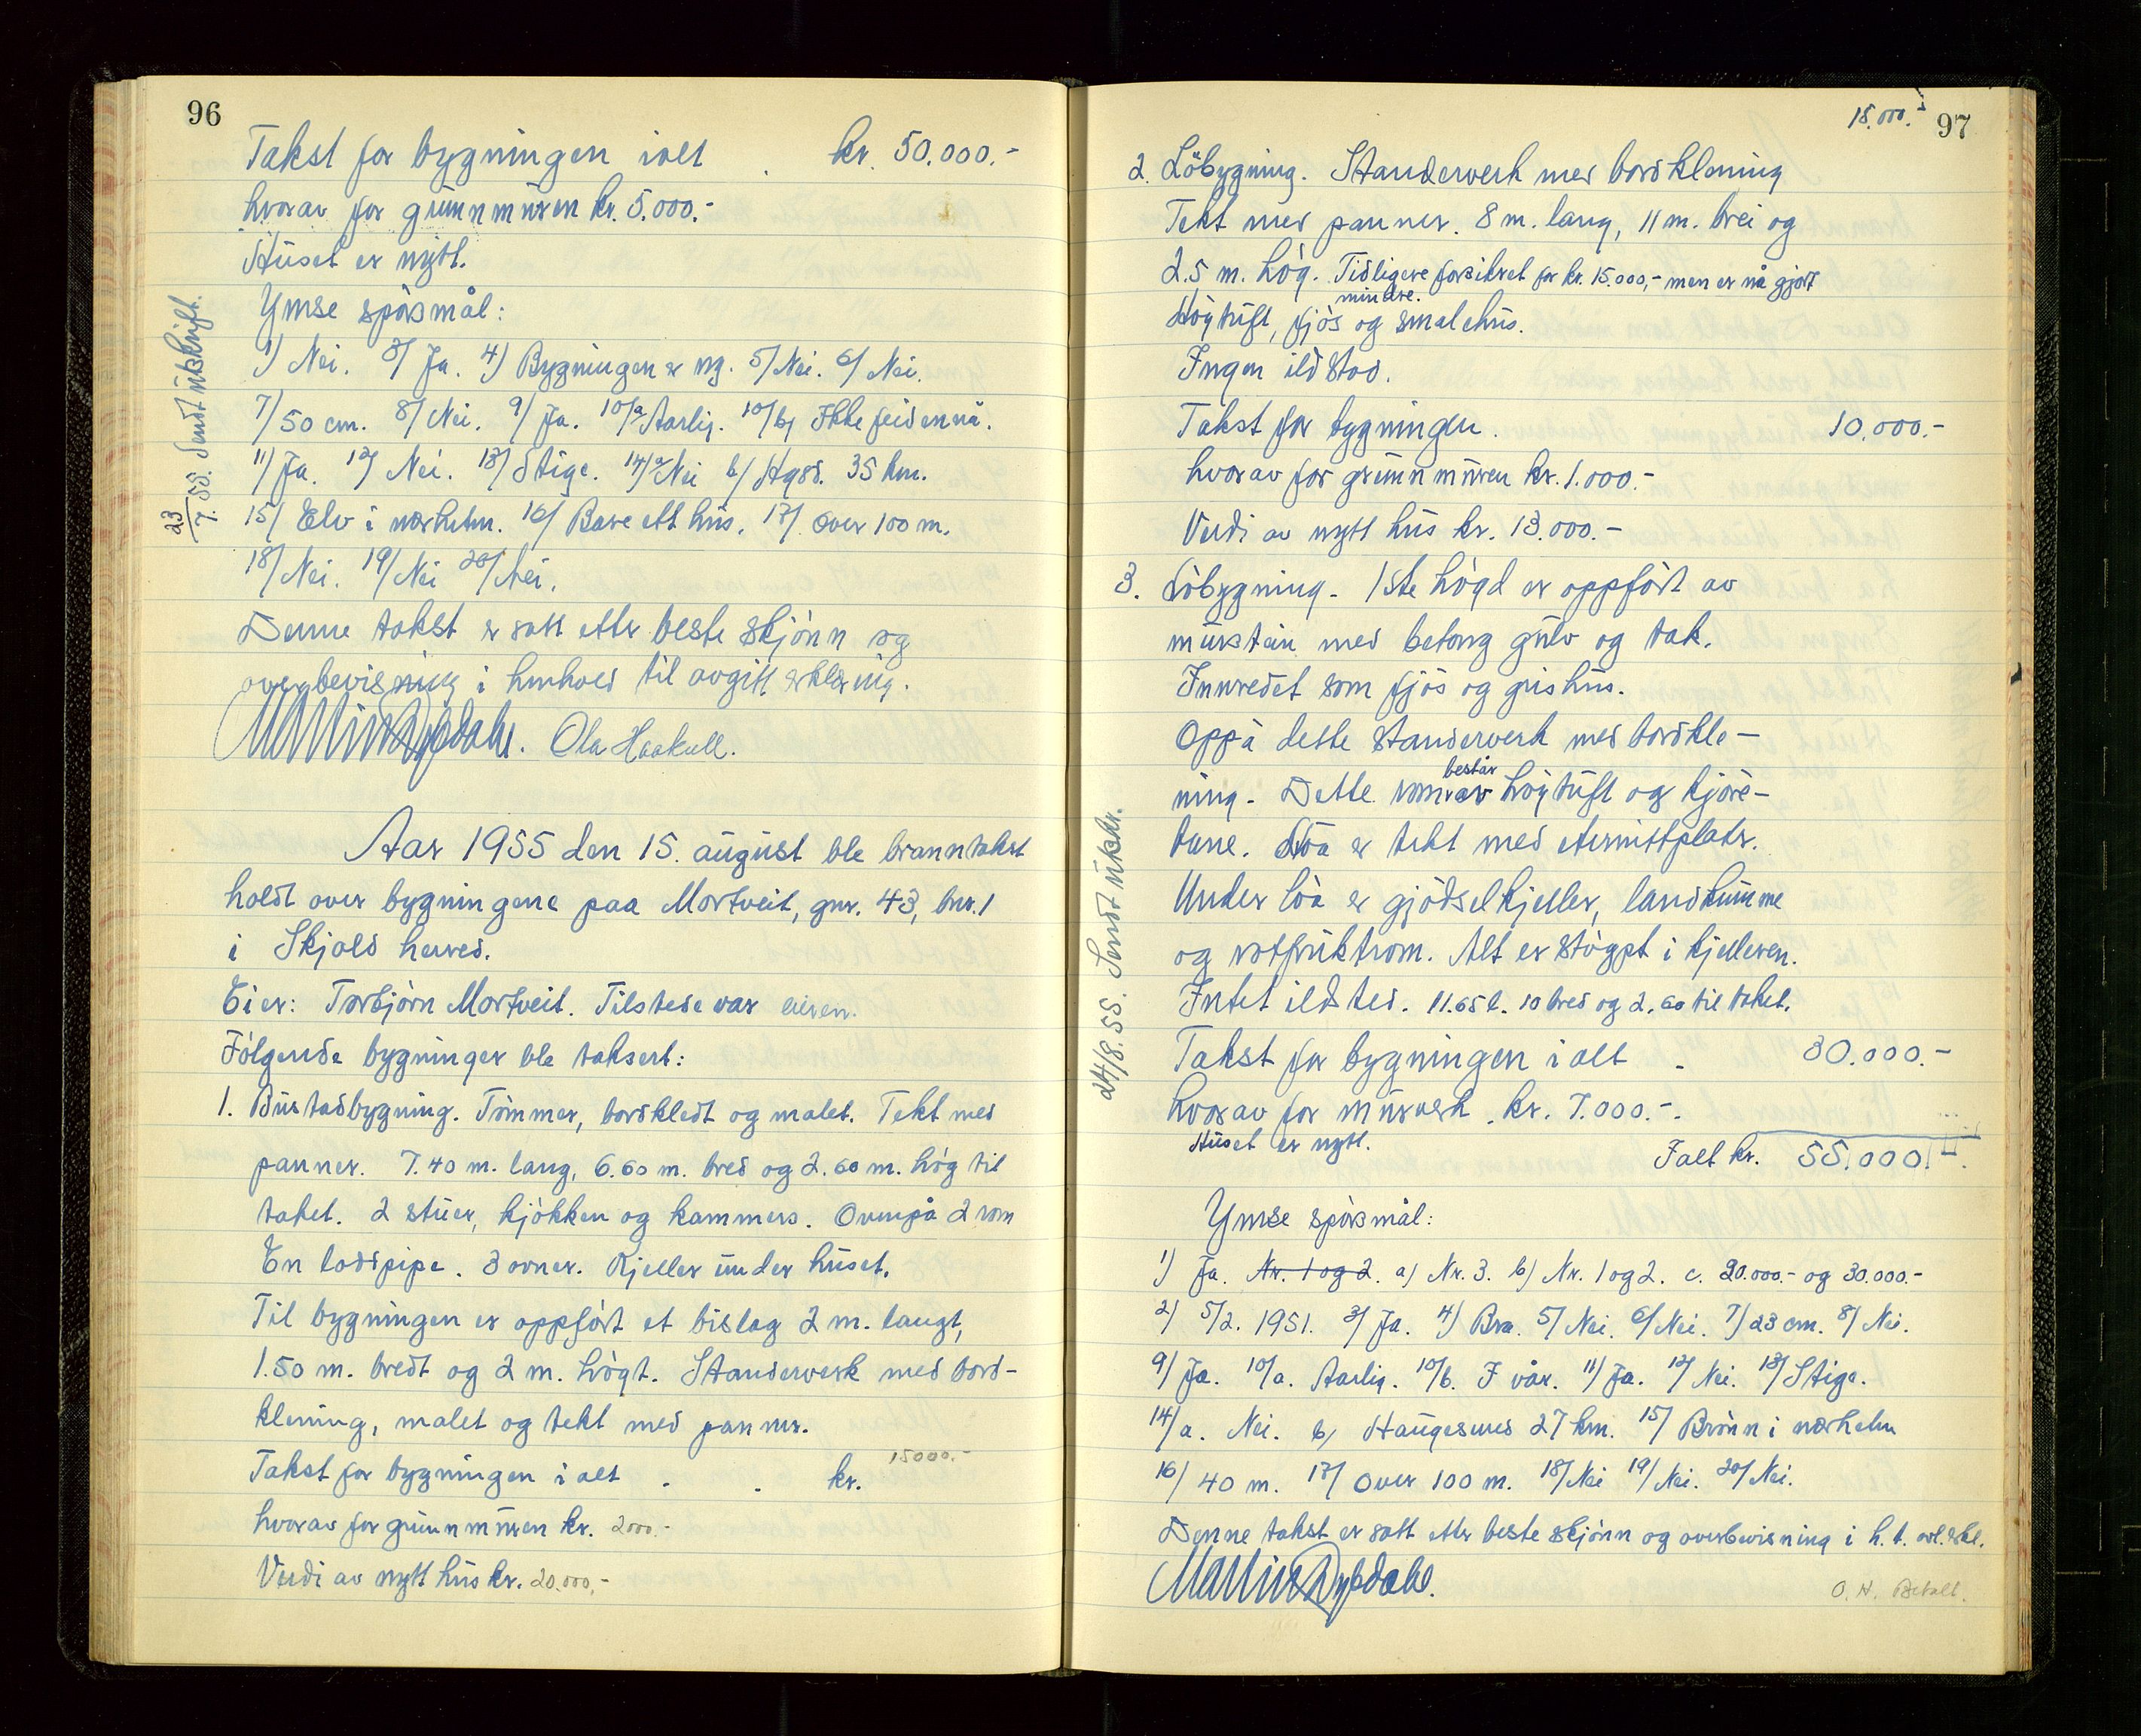 96
Takst for bygningen ialt . kr. 50.000.-
hvorav for grunnmuren kr. 5.000.-
Huset er nytt.
Ymse spörsmål:
1) Nei. 3) Ja. 4) Bygningen er ny. 5) Nei. 6) Nei.
7) 50 cm. 8) Nei. 9) Ja. 10)a) Aarlig. 10)b) Ikke feid ennå.
11) Ja. 12) Nei. 13) Stige. 14)a) Nei b) Hgsd. 35 km.
15) Elv i nærheten. 16) Bare ett hus. 17) Over 100 m.
18) Nei. 19) Nei 20) Nei.
Denne takst er satt etter beste skjönn og
overbevisning i henhold til avgitt erklæring.
Martin Dybdahl. Ola Haakull.
23/7.55. Sendt utskrift.
Aar 1955 den 15. august ble branntakst
holdt over bygningene paa Mortveit, gnr. 43, bnr. 1
i Skjold herred.
Eier: Torbjörn Mortveit. Tilstede var eieren.
Fölgende bygninger ble taksert:
1. Bustadbygning. Tömmer, bordkledt og malet. Tekt med
panner. 7.40 m. lang, 6.60 m. bred og 2.60 m. hög til
taket. 2 stuer, kjökken og kammers. Ovenpå 2 rom
En loddpipe. 3 ovner. Kjeller under huset.
Til bygningen er oppfört et bislag 2 m. langt,
1.50 m. bredt og 2 m. högt. Standerverk med bord-
klening, malet og tekt med panner.
Takst for bygningen i alt . . kr. 15000.-
hvorav for grunnmuren kr. 2000.-
Verdi av nytt hus kr. 20.000,-
15.000.-
97
2. Löbygning. Standerverk med bordklening
Tekt med panner. 8 m. lang, 11 m. brei og
2.5 m. hög. Tidligere forsikret for kr. 15.000,- men er nå gjort
mindre.
Höytuft, fjös og smalehus.
Ingen ildstad.
Takst for bygningen. 10.000.-
hvorav for grunnmuren kr. 1.000.-
Verdi av nytt hus kr. 13.000.-
3. Löbygning. 1ste högd er oppfört av
murstein med betong gulv og tak.
Innredet som fjös og grishus.
Oppå dette standerverk med bordkle-
ning. Dette består av höytuft og kjöre-
tune. Löa er tekt med eternittplater.
Under löa er gjödselkjeller, landkumme
og rotfruktrom. Alt er stöypt i kjelleren.
Intet ildsted. 11.65 l. 10 bred og 2.60 til taket.
Takst for bygningen i alt . 30.000.-
hvorav for murverk. kr. 7.000.-.
Huset er nytt.
Ialt kr. 55.000.-
24/8.55. Sendt utskr.
Ymse spörsmål:
1) Ja. Nr. 1 og 2. a) Nr. 3. b) Nr. 1 og 2. c. 20.000.- og 30.000.-
2) 5/2. 1951. 3) Ja. 4) Bra. 5) Nei. 6) Nei. 7) 23 cm. 8) Nei.
9) Ja. 10)a. Aarlig. 10)b. I vår. 11) Ja. 12) Nei. 13) Stige.
14)a. Nei. b) Haugesund 27 km. 15) Brönn i nærheten
16) 40 m. 17) Over 100 m. 18) Nei 19) Nei. 20) Nei.
Denne takst er satt etter beste skjönn og overbevisning i h. t.
Martin Dybdahl.
O. H. Betalt.